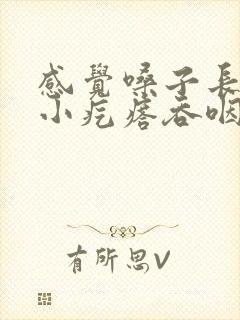 感覺嗓子長
小疙瘩吞咽
有所思V